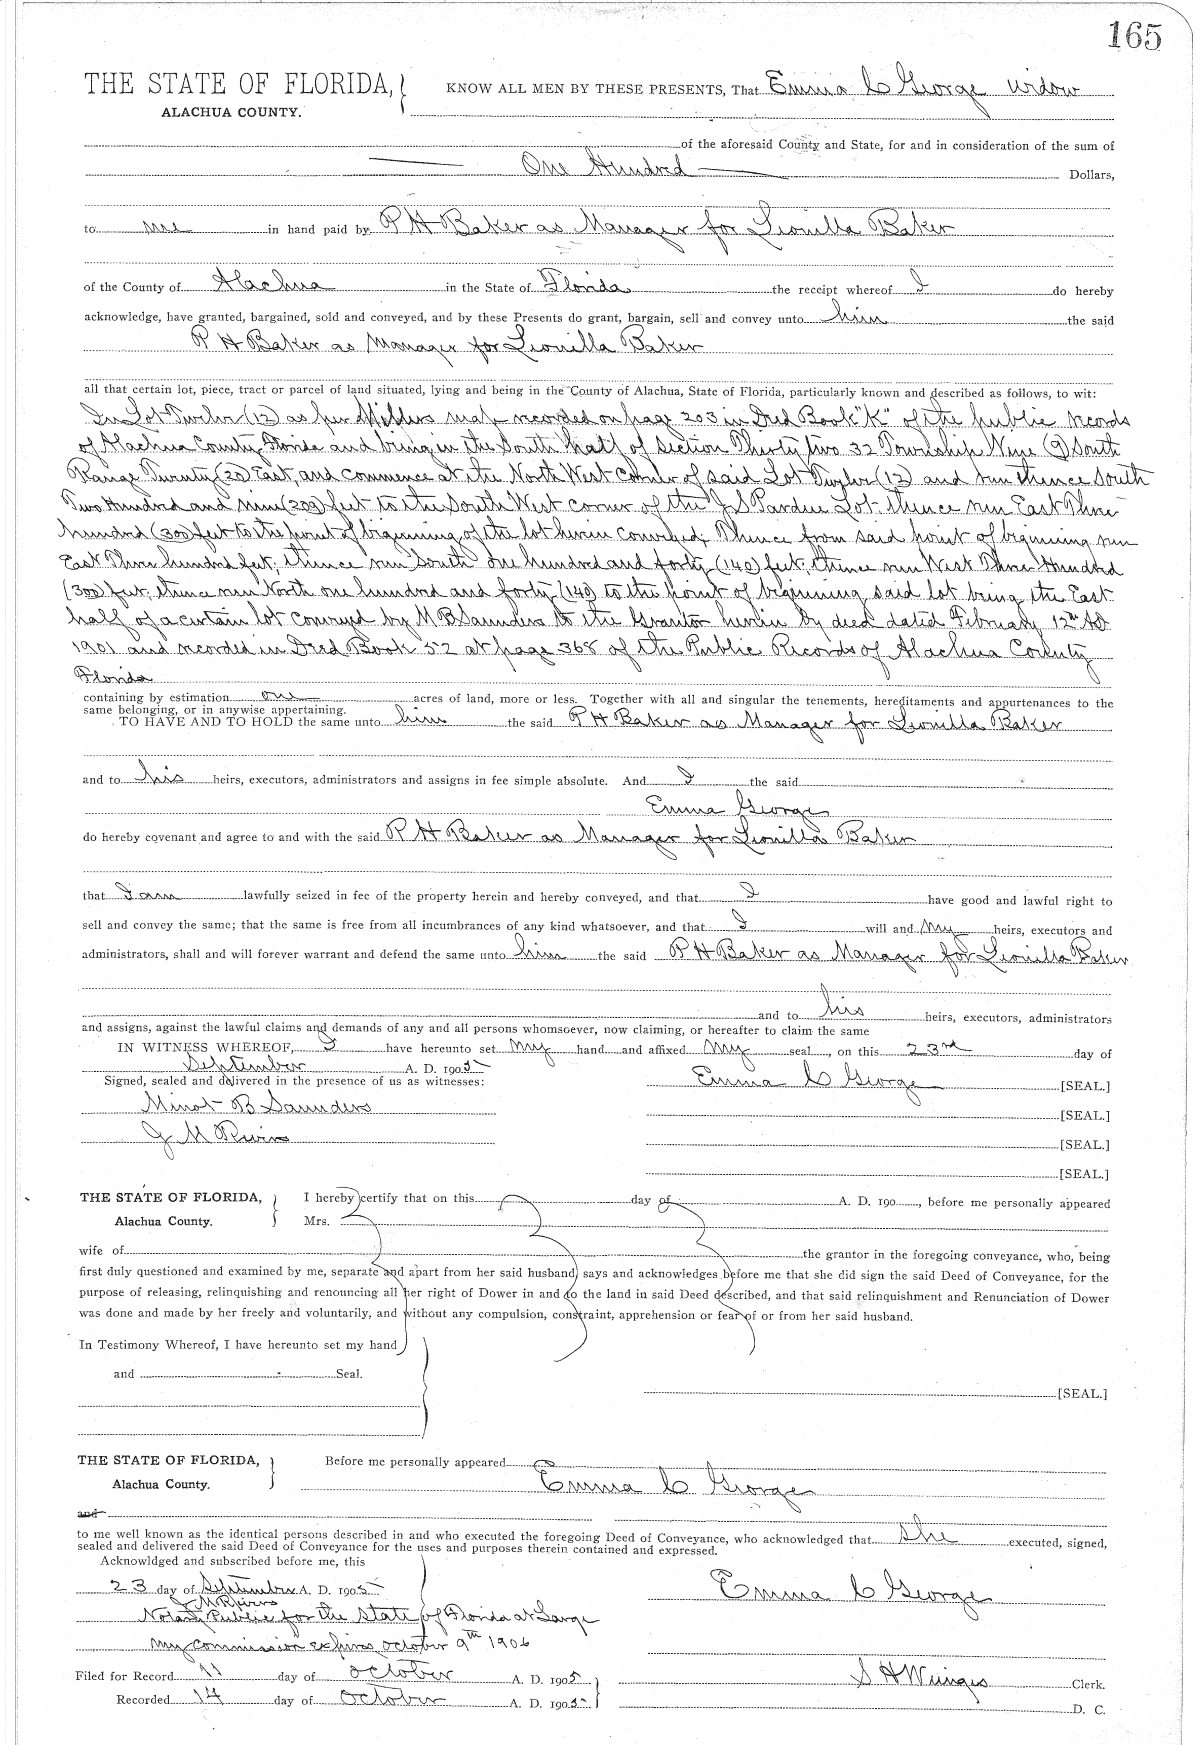 165
THE STATE OF FLORIDA, KNOW ALL MEN BY THESE PRESENTS, That Emma C George widow
ALACHUA COUNTY.
of the aforesaid County and State, for and in consideration of the sum of
One Hundred Dollars,
to me in hand paid by P H Baker as Manager for Leonilla Baker
of the County of Alachua in the State of Florida the receipt whereof I do hereby
acknowledge, have granted, bargained, sold and conveyed, and by these Presents do grant, bargain, sell and convey unto him the said
P H Baker as Manager for Leonilla Baker
all that certain lot, piece, tract or parcel of land situated, lying and being in the County of Alachua, State of Florida, particularly known and described as follows, to wit:
In Lot Twelve (12) as per map recorded on page 203 in Deed Book "K" of the public records
of Alachua County Florida and being in the South half of section Thirty two 32 Township Nine (9) South
Range Twenty (20) East, and commence at the North West corner of said Lot Twelve (12) and run thence South
Two Hundred and nine (209) feet to the South West corner of the J S Pardue Lot. thence run East Three
hundred (300) feet to the point of biginning of the lot herein conveyed; Thence from said point of biginning run
East Three hundred feet; thence run South one hundred and forty (140) feet; thence run West Three Hundred
(300) feet; thence run North one hundred and forty (140) to the point of biginning said lot being the East
half of a certain lot conveyed by M B Saunders to the Grantor herein by deed dated February 12th AD
1901 and recorded in Deed Book 52 at page 368 of the Public Records of Alachua County
Florida
containing by estimation one acres of land, more or less. Together with all and singular the tenements, hereditaments and appurtenances to the
same belonging, or in anywise appertaining.
TO HAVE AND TO HOLD the same unto him the said P H Baker as Manager for Leonilla Baker
and to his heirs, executors, administrators and assigns in fee simple absolute. And I the said
Emma George
do hereby covenant and agree to and with the said P H Baker as Manager for Leonilla Baker
that I am lawfully seized in fee of the property herein and hereby conveyed, and that I have good and lawful right to
sell and convey the same; that the same is free from all incumbrances of any kind whatsoever, and that I will and my heirs, executors and
administrators, shall and will forever warrant and defend the same unto him the said P H Baker as Manager for Leonilla Baker
and to his heirs, executors, administrators
and assigns, against the lawful claims and demands of any and all persons whomsoever, now claiming, or hereafter to claim the same
IN WITNESS WHEREOF, I have hereunto set my hand and affixed my seal, on this 23rd day of
September A. D. 1905
Signed, sealed and delivered in the presence of us as witnesses: Emma C George [SEAL.]
Minot B Saunders [SEAL.]
J M Rivers [SEAL.]
[SEAL.]
THE STATE OF FLORIDA, I hereby certify that on this day of A. D. 190, before me personally appeared
Alachua County. Mrs.
wife of the grantor in the foregoing conveyance, who, being
first duly questioned and examined by me, separate and apart from her said husband, says and acknowledges before me that she did sign the said Deed of Conveyance, for the
purpose of releasing, relinquishing and renouncing all her right of Dower in and to the land in said Deed described, and that said relinquishment and Renunciation of Dower
was done and made by her freely and voluntarily, and without any compulsion, constraint, apprehension or fear of or from her said husband.
In Testimony Whereof, I have hereunto set my hand
and Seal.
[SEAL.]
THE STATE OF FLORIDA, Before me personally appeared
Alachua County. Emma C George
and
to me well known as the identical persons described in and who executed the foregoing Deed of Conveyance, who acknowledged that she executed, signed,
sealed and delivered the said Deed of Conveyance for the uses and purposes therein contained and expressed.
Acknowldged and subscribed before me, this
23 day of September A. D. 1905 Emma C George
J M Rivers
Notary Public for the State of Florida at Large
My commission expires October 9th 1906
Filed for Record 11 day of October A. D. 1905 S H Wienges Clerk.
Recorded 14 day of October A. D. 1905 D. C.